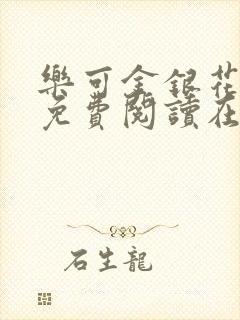 樂可金銀花
免費閱讀在
石生龍